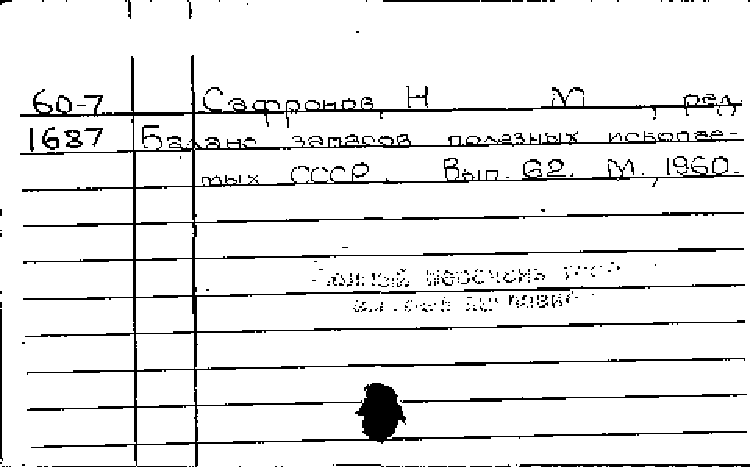 60-7 Сафронов, Н М , ред.
1687 Баланс запасов полезных ископае-
мых СССР. Вып. 62. М., 1960.